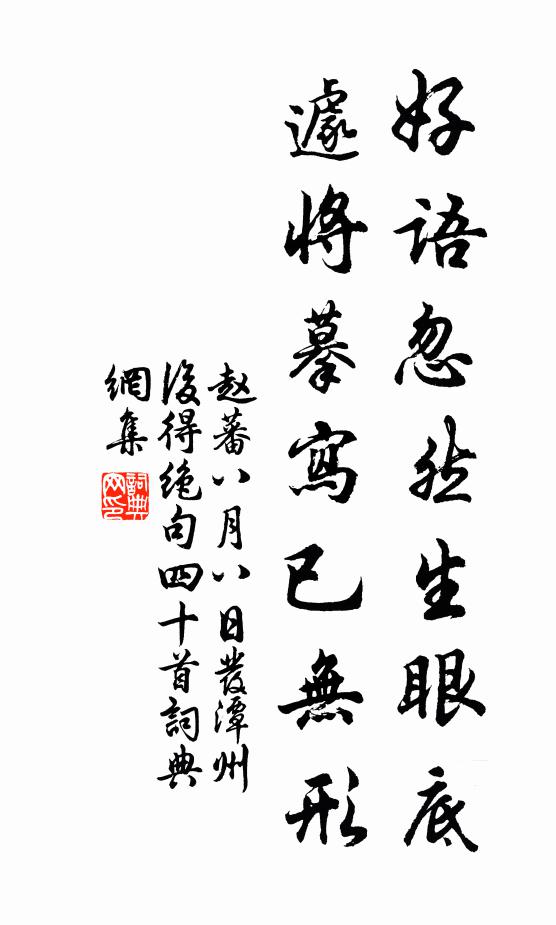 好語忽然生眼底
遽將摹寫已無形
赵蕃八月八日發潭州
後得绝句四十首詞典
網集
詞典網印